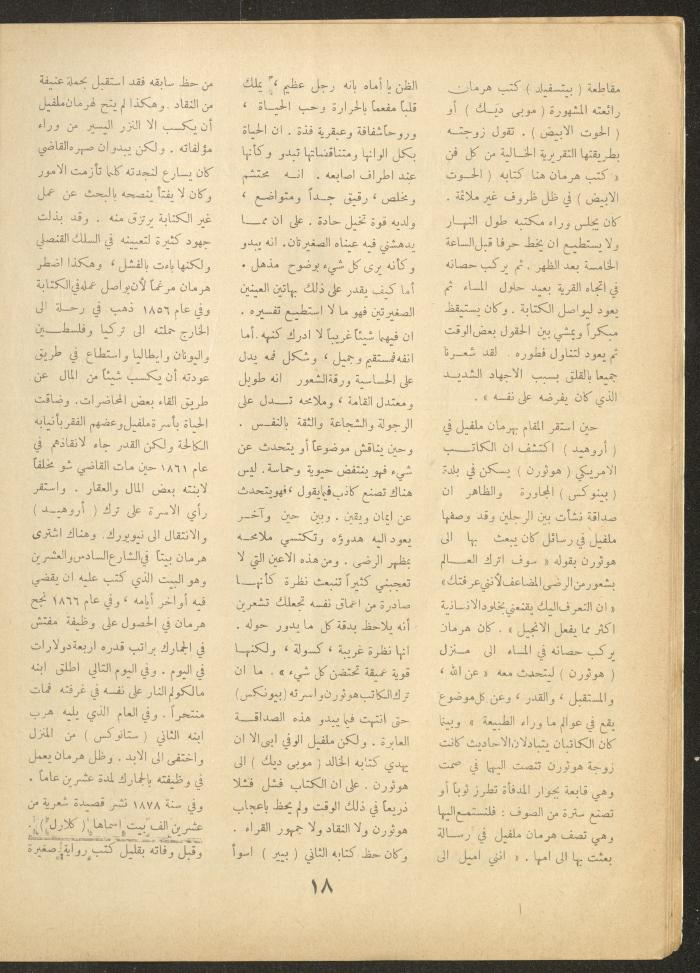 مقاطعة ( بيتسفيلد ) كتب هرمان
رائعته المشهورة ( موبي ديك ) أو
( الحوت الابيض ) . تقول زوجته
بطريقتها التقريرية الخالية من كل فن
« كتب هرمان هنا كتابه ( الحوت
الابيض ) في ظل ظروف غير ملائمة .
كان يجلس وراء مكتبه طول النهار
ولا يستطيع ان يخط حرفا قبل الساعة
الخامسة بعد الظهر . ثم يركب حصانه
في اتجاه القرية بعيد حلول المساء ثم
يعود ليواصل الكتابة . وكان يستيقظ
مبكراً ويمشي بين الحقول بعض الوقت
ثم يعود لتناول فطوره . لقد شعرنا
جميعا بالقلق بسبب الاجهاد الشديد
الذي كان يفرضه على نفسه » .
حين استقر المقام بهرمان ملفيل في
( أروهيد ) اكتشف ان الكاتب
الامريكي ( هوثورن ) يسكن في بلدة
( بينوكس ) المجاورة والظاهر ان
صداقة نشأت بين الرجلين وقد وصفها
ملفيل في رسائل كان يبعث بها الى
هوثورن بقوله « سوف اترك العالم
بشعور من الرضى المضاعف لأنني عرفتك»
« ان التعرف اليك يقنعني بخلود الانسانية
اكثر مما يفعل الانجيل » . كان هرمان
يركب حصانه في المساء الى منزل
( هوثورن ) ليتحدث معه « عن الله ،
والمستقبل ، والقدر ، وعن كل موضوع
يقع في عوالم ما وراء الطبيعة » وبينما
كان الكاتبان يتبادلان الاحاديث كانت
زوجة هوثورن تنصت اليهما في صمت
وهي قابعة بجوار المدفأة تطرز ثوباً أو
تصنع سترة من الصوف : فلنستمع اليها
وهي تصف هرمان ملفيل في رسالة
بعثت بها الى امها . « انني اميل الى
الظن يا أماه بانه رجل عظيم ، يملك
قلباً مفعماً بالحرارة وحب الحياة ،
وروحاً شفافة وعبقرية فذة . ان الحياة
بكل الوانها ومتناقضاتها تبدو وكأنها
عند اطراف اصابعه . انه محتشم
ومخلص ، رقيق جداً ومتواضع ،
ولديه قوة تخيل حادة . على ان مما
يدهشني فيه عيناه الصغيرتان . انه يبدو
وكأنه يرى كل شيء بوضوح مذهل .
أما كيف يقدر على ذلك بهاتين العينين
الصغيرتين فهو ما لا استطيع تفسيره .
ان فيهما شيئاً غريباً لا ادرك كنهه . أما
انفه فمستقيم وجميل ، وشكل فمه يدل
على الحساسية ورقة الشعور انه طويل
ومعتدل القامة ، وملامحه تدل على
الرجولة والشجاعة والثقة بالنفس .
وحين يناقش موضوعاً أو يتحدث عن
شيء فهو ينتفض حيوية وحماسة . ليس
هناك تصنع كاذب فيما يقول ، فهو يتحدث
عن ايمان ويقين . وبين حين وآخر
يعود اليه هدوؤه وتكتسي ملامحه
بمظهر الرضى . ومن هذه الاعين التي لا
تعجبني كثيراً تنبعث نظرة كأنها
صادرة من اعماق نفسه تجعلك تشعرين
أنه يلاحظ بدقة كل ما يدور حوله .
انها نظرة غريبة ، كسولة ، ولكنها
قوية عميقة تحتضن كل شيء » . ما ان
ترك الكاتب هوثورن واسرته (بينوكس)
حتى انتهت فيما يبدو هذه الصداقة
العابرة . ولكن ملفيل الوفي ابى الا ان
يهدي كتابه الخالد ( موبي ديك ) الى
هوثورن . على ان الكتاب فشل فشلا
ذريعاً في ذلك الوقت ولم يحظ باعجاب
هوثورن ولا النقاد ولا جمهور القراء .
وكان حظ كتابه الثاني ( بيير ) اسوأ
من حظ سابقه فقد استقبل بحملة عنيفة
من النقاد . وهكذا لم يتح لهرمان ملفيل
أن يكسب الا النزر اليسير من وراء
مؤلفاته . ولكن يبدو ان صهره القاضي
كان يسارع لنجدته كلما تأزمت الامور
وكان لا يفتأ ينصحه بالبحث عن عمل
غير الكتابة يرتزق منه . وقد بذلت
جهود كثيرة لتعيينه في السلك القنصلي
ولكنها باءت بالفشل ، وهكذا اضطر
هرمان مرغماً لأن يواصل عمله في الكتابة
وفي عام ١٨٥٦ ذهب في رحلة الى
الخارج حملته الى تركيا وفلسطين
واليونان وايطاليا واستطاع في طريق
عودته أن يكسب شيئاً من المال عن
طريق القاء بعض المحاضرات . وضاقت
الحياة بأسرة ملفيل وعضهم الفقر بأنيابه
الكالحة ولكن القدر جاء لانقاذهم في
عام ١٨٦١ حين مات القاضي شو مخلفاً
لابنته بعض المال والعقار . واستقر
رأي الاسرة على ترك ( أروهيد )
والانتقال الى نيويورك . وهناك اشترى
هرمان بيتاً في الشارع السادس والعشرين
وهو البيت الذي كتب عليه ان يقضي
فيه أواخر أيامه ، وفي عام ١٨٦٦ نجح
هرمان في الحصول على وظيفة مفتش
في الجمارك براتب قدره اربعة دولارات
في اليوم . وفي اليوم التالي اطلق ابنه
مالكولم النار على نفسه في غرفته فمات
منتحراً . وفي العام الذي يليه هرب
ابنه الثاني ( ستانوكس ) من المنزل
واختفى الى الابد . وظل هرمان يعمل
في وظيفته بالجمارك لمدة عشرين عاماً .
وفي سنة ١٨٧٨ نشر قصيدة شعرية من
عشرين الف بيت اسماها ( كلارل ) .
وقبل وفاته بقليل كتب رواية صغيرة
١٨